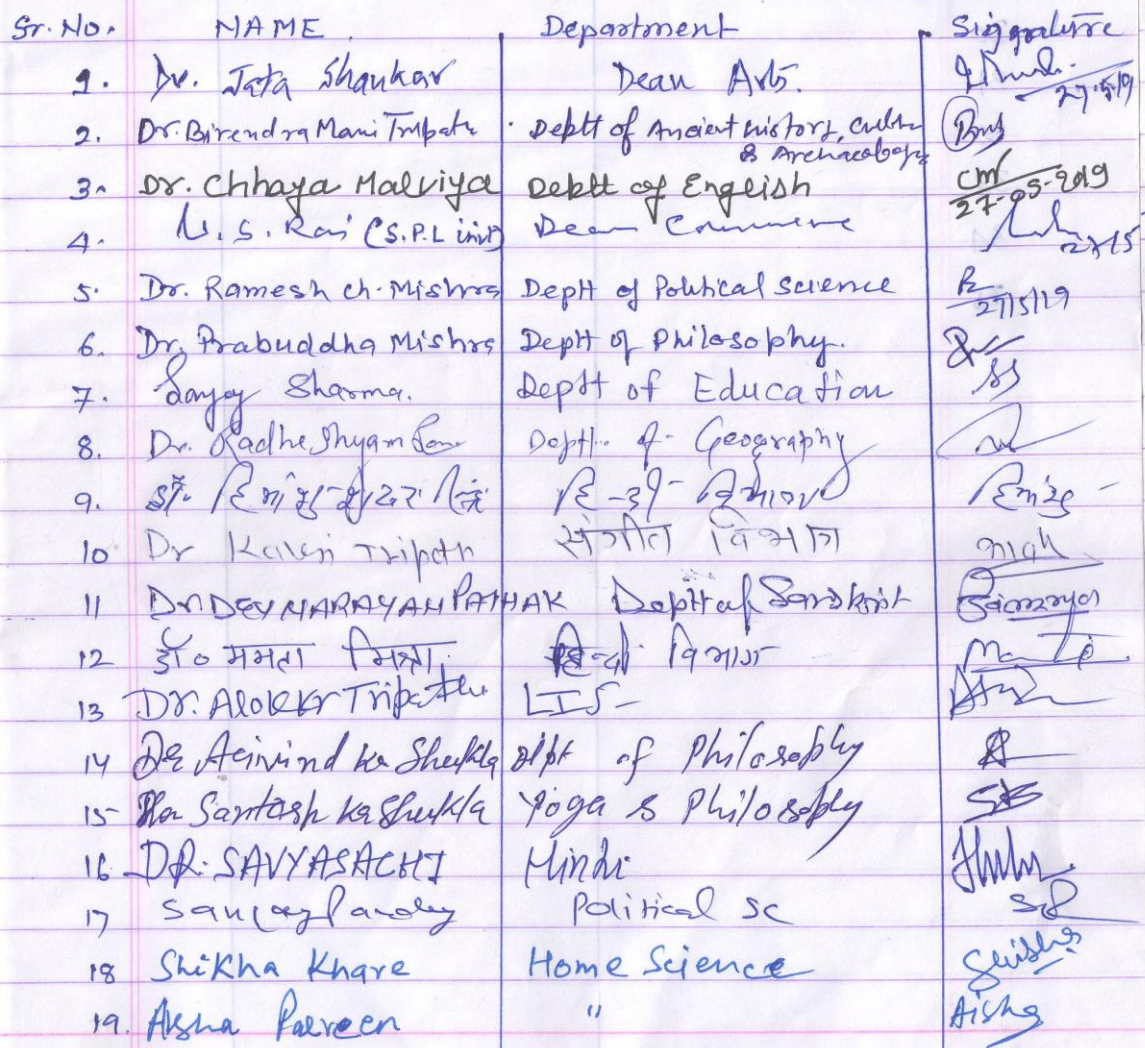 Sr. No. NAME. Department Signature
1. Dr. Jata Shankar Dean Arts. 27.5.19
2. Dr. Birendra Mani Tripathi Deptt of Ancient history, Culture Bmj
& Archaeology
3. Dr. Chhaya Malviya Deptt of English cm
27-05-2019
4. U.S. Rai (S.P.L Dean Commerce 27/5
5. Dr. Ramesh ch. Mishra Deptt of Political Science R
27/5/19
6. Dr. Prabuddha Mishra Deptt of Philosophy.
7. Sanjay Sharma. Deptt of Education SS
8. Dr. Radhe Shyam Deptt. of Geography
9. डॉ. हिमांशु शेखर सिंह हिन्दी विभाग हिमांशु
10 Dr Kalan Tripathi संगीत विभाग
11 Dr DEV NARAYAN PATHAK Deptt of Sanskrit
12 डॉ० ममता मिश्रा, हिन्दी विभाग
13 Dr. Alok Kr Tripathi LIS-
14 Dr Arvind kr Shukla Dept of Philosophy A
15 Santosh kr Shukla Yoga & Philosophy SK
16. DR. SAVYASACHI Hindi
17 Sanjay Pandey Political Sc
18 Shikha Khare Home Science Shikha
19. Aisha Parveen " Aisha